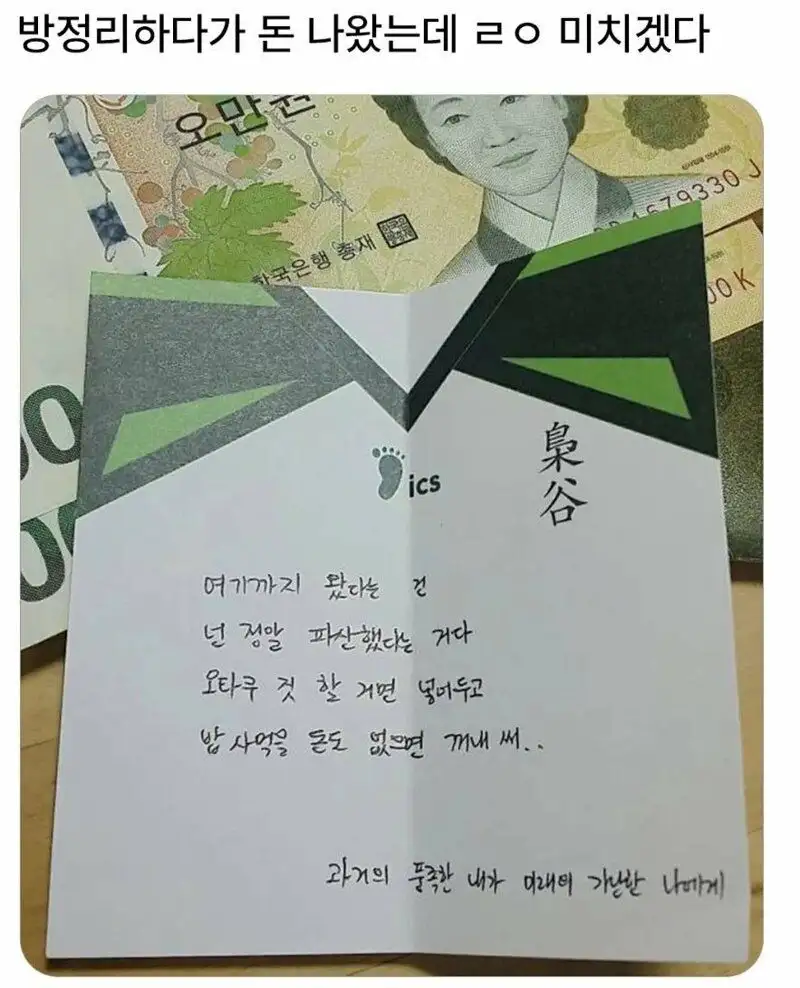 방정리하다가 돈 나왔는데 ㄹㅇ 미치겠다
오만원
한국은행 총재
1679330 J
00 K
00
00
ics
梟谷
여기까지 왔다는 건
넌 정말 파산했다는 거다
오타쿠 짓 할 거면 넣어두고
밥 사먹을 돈도 없으면 꺼내 써..
과거의 풍족한 내가 미래의 가난한 나에게